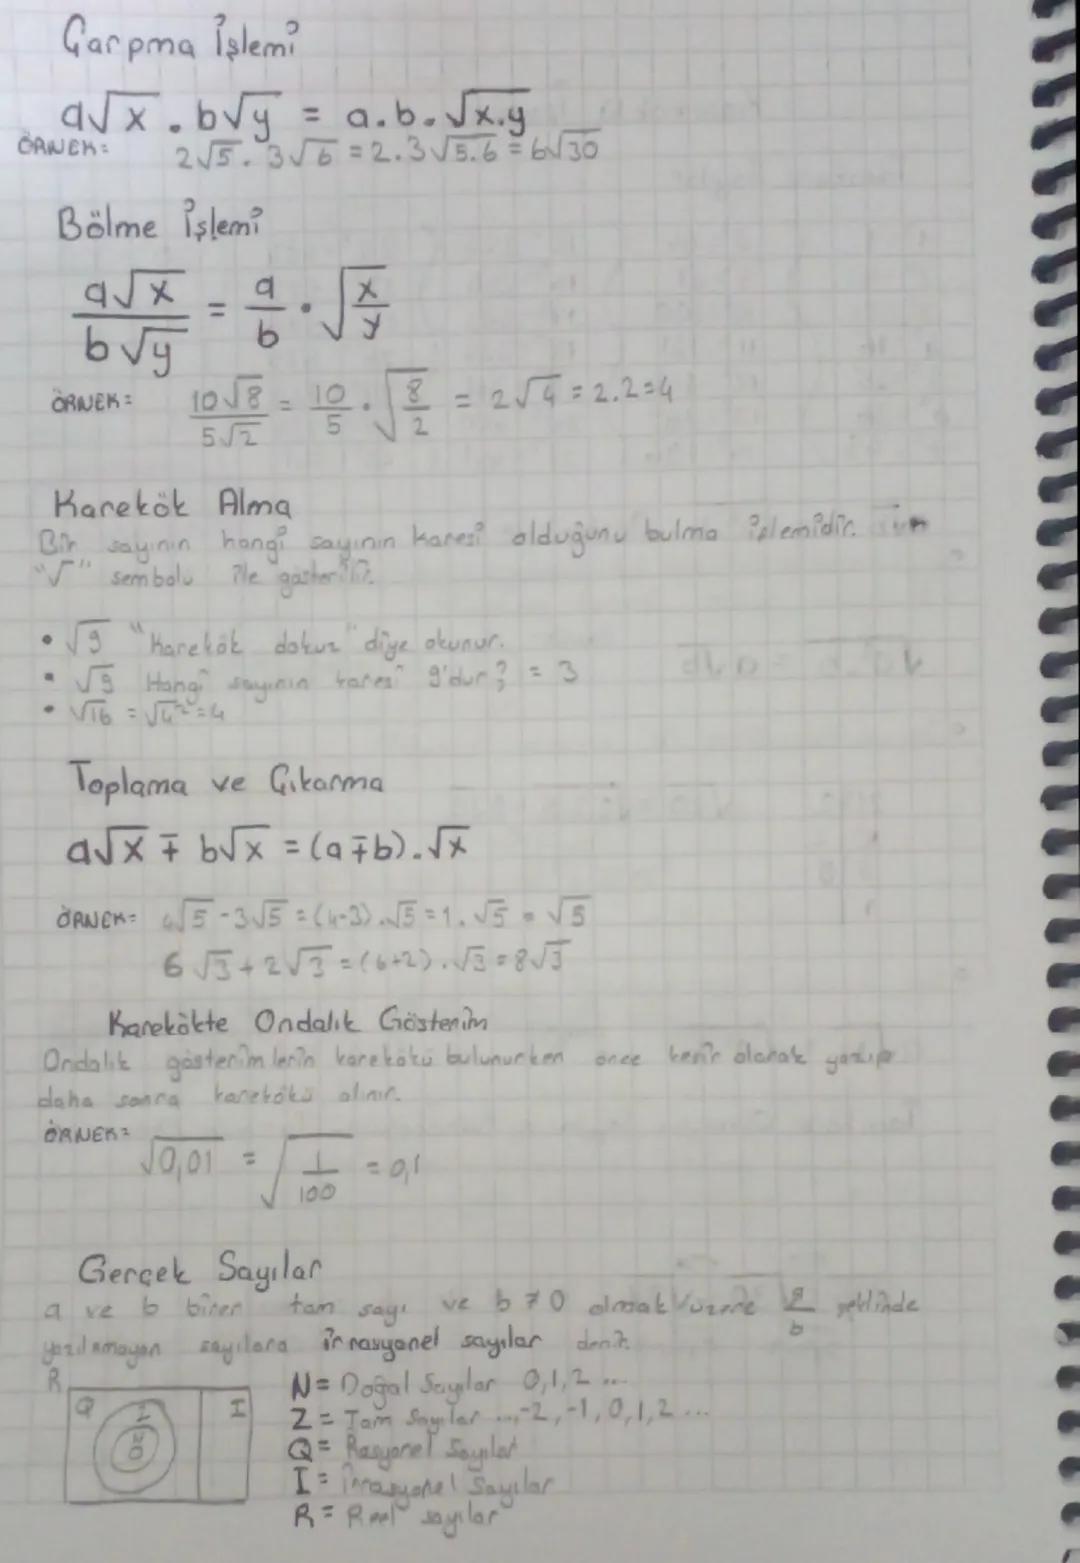 Çarpma İşlemi
a√x . b√y = a.b.√x.y
ÖRNEK: 2√5 . 3√6 = 2.3√5.6 = 6√30
Bölme işlemi
a√x / b√y = a/b . √x/y
ÖRNEK: 10√8 / 5√2 = 10/5 . √8/2 = 2√4 = 2.2=4
Karekök Alma
Bir sayının hangi sayının karesi olduğunu bulma işlemidir.
"√" sembolu ile gösterilir.
• √9 "Karekök dokuz" diye okunur.
• √9 Hangi sayının karesi 9'dur? = 3
• √16 = √4² = 4
Toplama ve Çıkarma
a√x ∓ b√x = (a∓b).√x
ÖRNEK= 4√5 - 3√5 = (4-3).√5 = 1.√5 = √5
6√3 + 2√3 = (6+2).√3 = 8√3
Karekökte Ondalık Gösterim
Ondalık gösterimlerin karekökü bulunurken önce kesir olarak yazıp
daha sonra karekökü alınır.
ÖRNEK=
√0,01 = √1/100 = 0,1
Gerçek Sayılar
a ve b birer tam sayı ve b≠0 olmak üzere a/b şeklinde
yazılamayan sayılara irrasyonel sayılar denir.
R
Q Z N 0 I
N= Doğal Sayılar 0,1,2 ...
Z= Tam Sayılar ...,-2,-1,0,1,2 ...
Q= Rasyonel Sayılar
I= İrrasyonel Sayılar
R= Reel sayılar